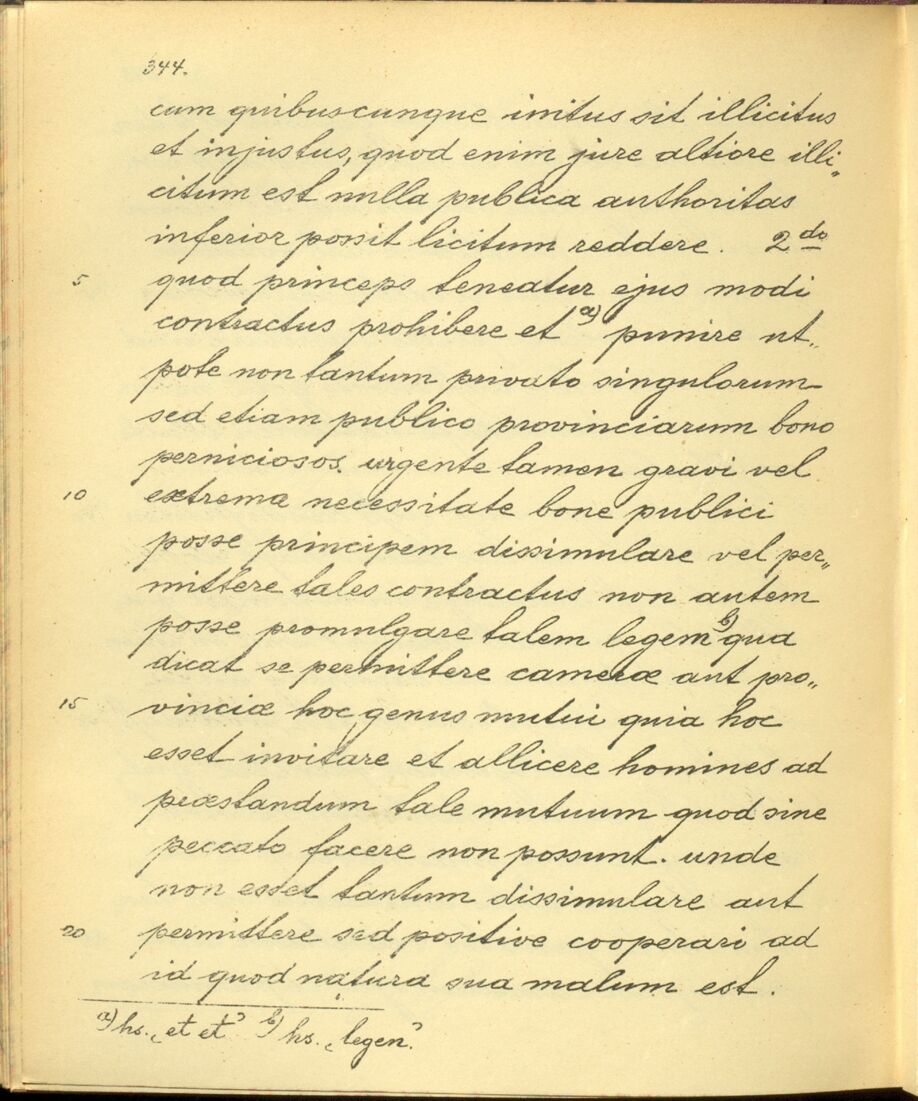 344.
cum quibuscunque initus sit illicitus
et injustus, quod enim jure altiore illi„
citum est nulla publica authoritas
inferior possit licitum reddere. 2do
5 quod princeps teneatur ejus modi
contractus prohibere et a) punire ut„
pote non tantum privato singulorum
sed etiam publico provinciarum bono
perniciosos. urgente tamen gravi vel
10 extrema necessitate bone publici
posse principem dissimulare vel per„
mittere tales contractus non autem
posse promulgare talem legem b) qua
dicat se permittere cameræ aut pro„
15 vinciæ hoc genus mutui quia hoc
esset invitare et allicere homines ad
præstandum tale mutuum quod sine
peccato facere non possunt. unde
non esset tantum dissimulare aut
20 permittere sed positive cooperari ad
id quod natura sua malum est.
a) hs. „et et” b) hs. „legen”.